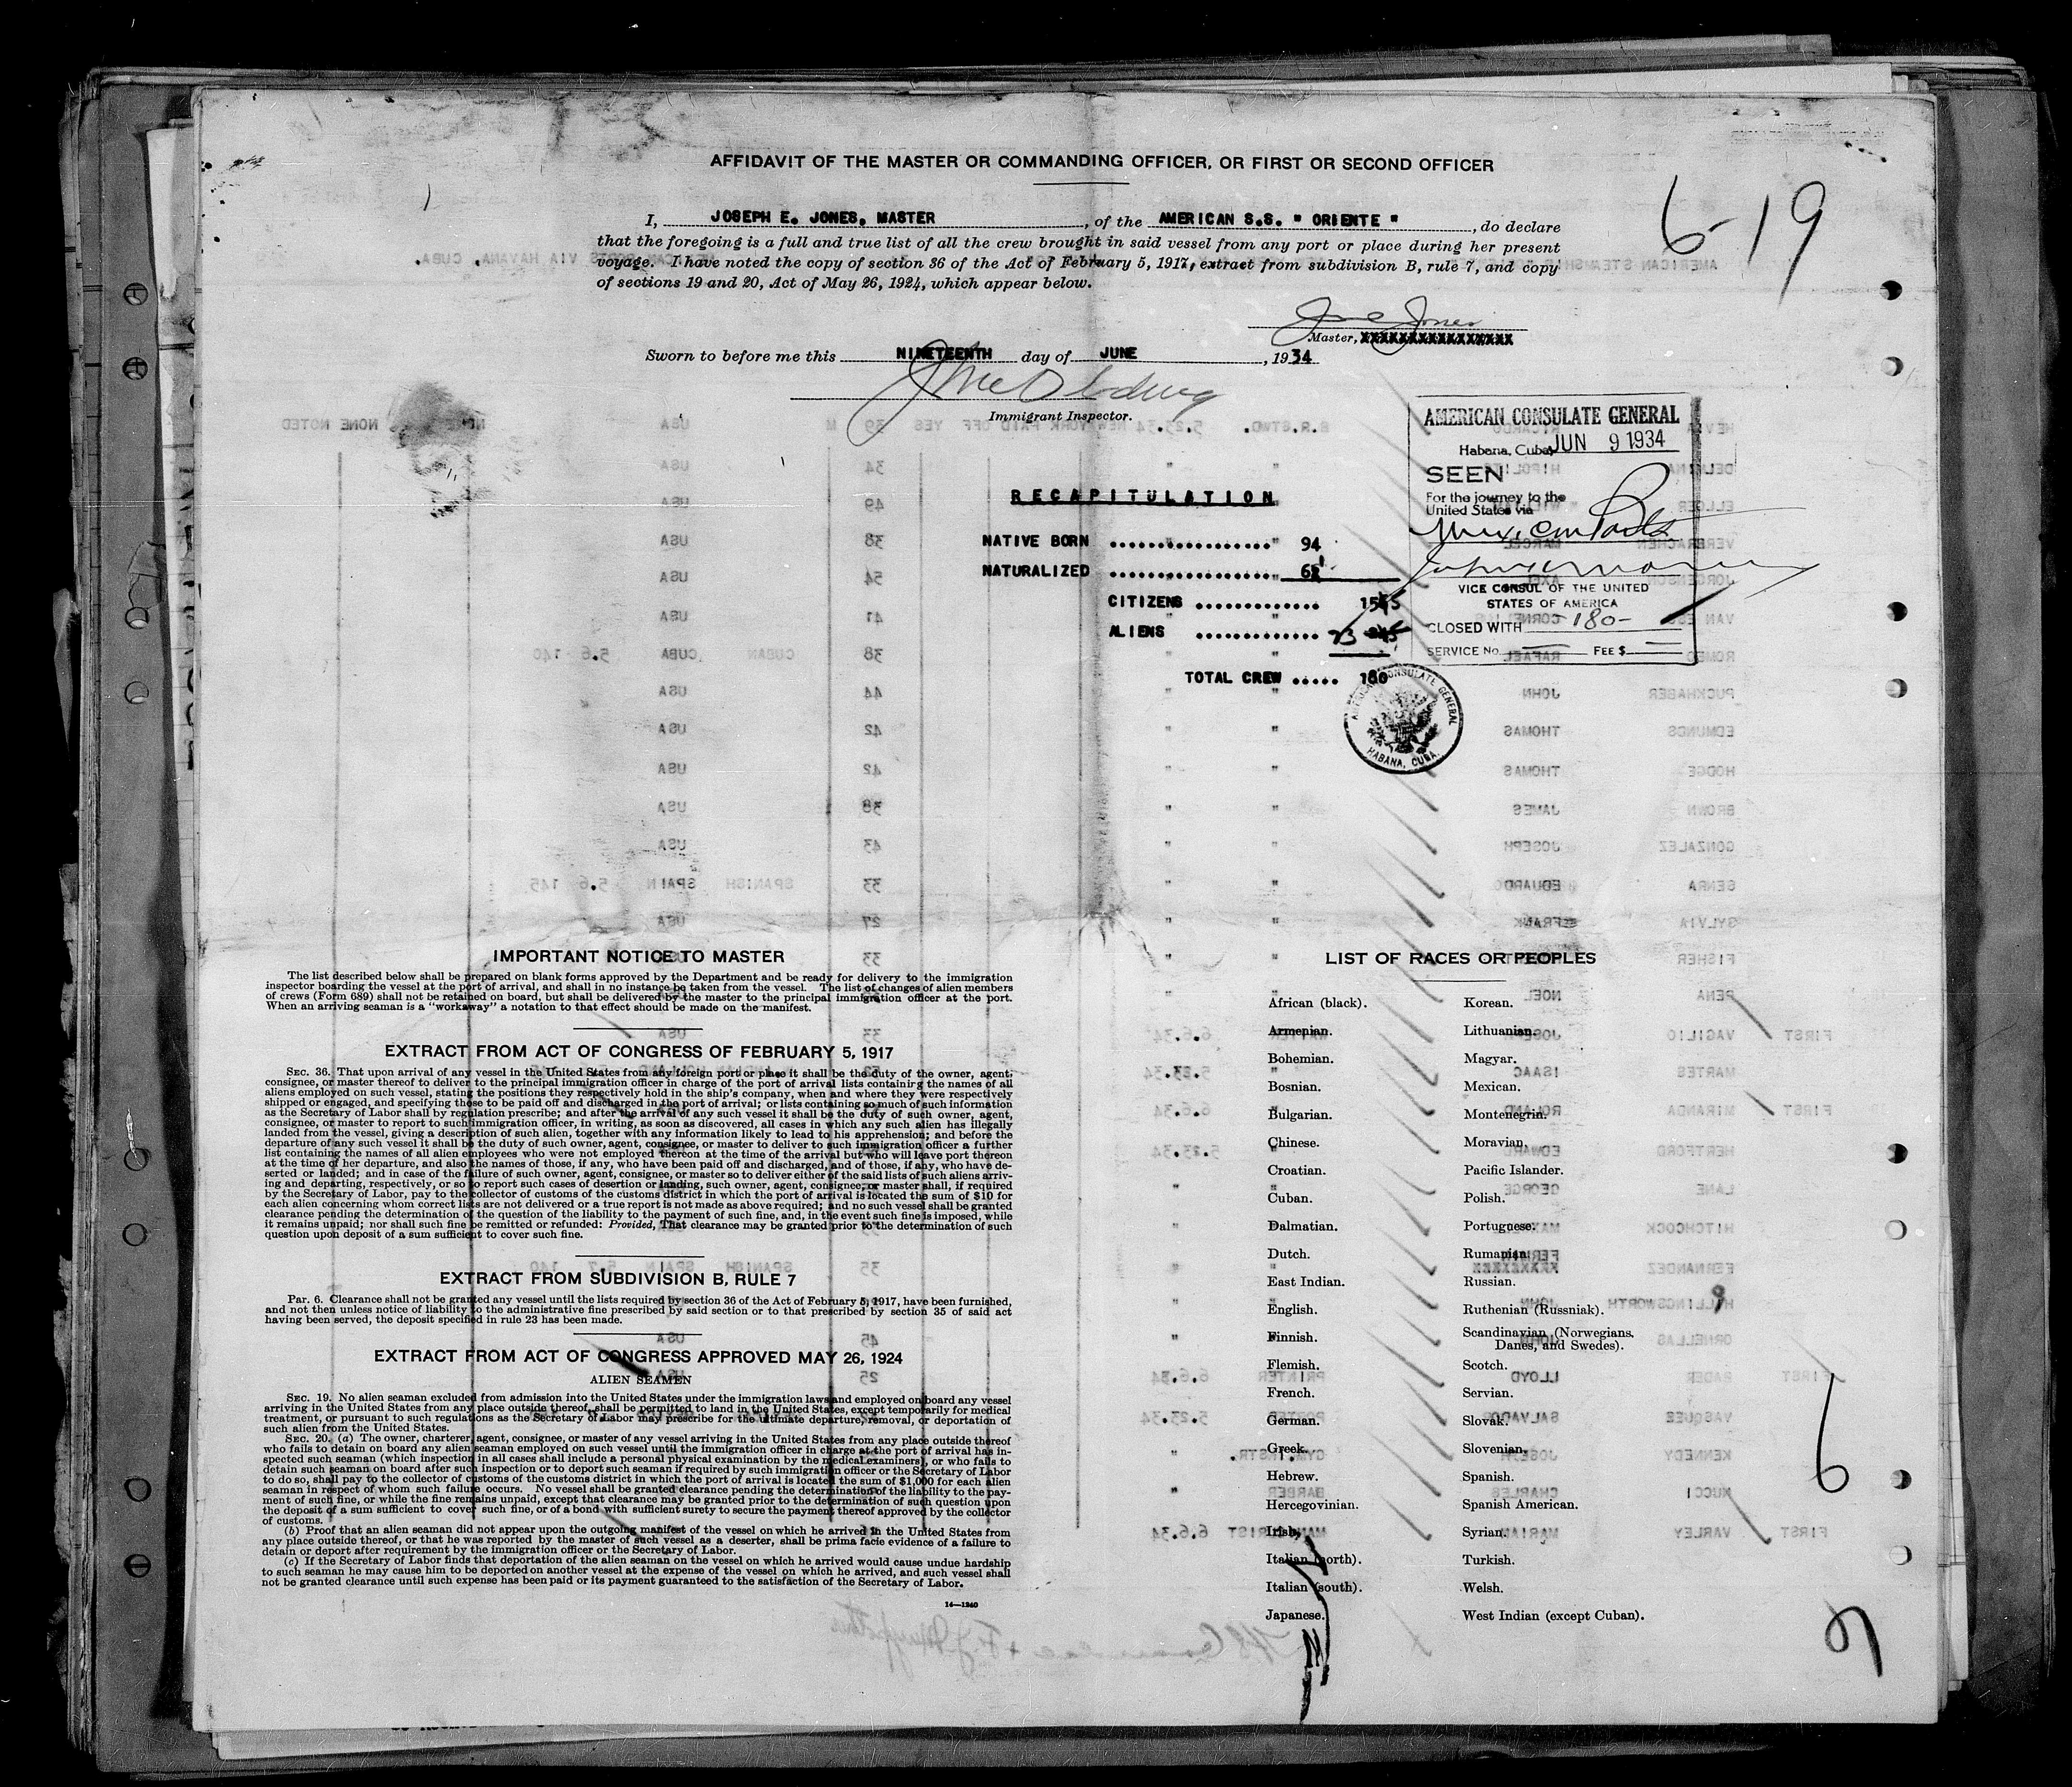 AFFIDAVIT OF THE MASTER OR COMMANDING OFFICER, OR FIRST OR SECOND OFFICER
6-19
I, JOSEPH E. JONES, MASTER, of the AMERICAN S.S. " ORIENTE ", do declare
that the foregoing is a full and true list of all the crew brought in said vessel from any port or place during her present
voyage. I have noted the copy of section 36 of the Act of February 5, 1917, extract from subdivision B, rule 7, and copy
of sections 19 and 20, Act of May 26, 1924, which appear below.
Jones
Master, XXXXXXXXXXXXXXXX
Sworn to before me this NINETEENTH day of JUNE, 1934
Immigrant Inspector.
AMERICAN CONSULATE GENERAL
Habana, Cuba JUN 9 1934
SEEN
For the journey to the
United States via
Mexican Ports
VICE CONSUL OF THE UNITED
STATES OF AMERICA
CLOSED WITH -180-
SERVICE No. FEE $
RECAPITULATION
NATIVE BORN .................. 94
NATURALIZED ..................
CITIZENS .............
ALIENS ............. 23
TOTAL CREW ..... 180
AMERICAN CONSULATE GENERAL
HABANA, CUBA.
IMPORTANT NOTICE TO MASTER
The list described below shall be prepared on blank forms approved by the Department and be ready for delivery to the immigration
inspector boarding the vessel at the port of arrival, and shall in no instance be taken from the vessel. The list of changes of alien members
of crews (Form 689) shall not be retained on board, but shall be delivered by the master to the principal immigration officer at the port.
When an arriving seaman is a "workaway" a notation to that effect should be made on the manifest.
EXTRACT FROM ACT OF CONGRESS OF FEBRUARY 5, 1917
SEC. 36. That upon arrival of any vessel in the United States from any foreign port or place it shall be the duty of the owner, agent,
consignee, or master thereof to deliver to the principal immigration officer in charge of the port of arrival lists containing the names of all
aliens employed on such vessel, stating the positions they respectively hold in the ship's company, when and where they were respectively
shipped or engaged, and specifying those to be paid off and discharged in the port of arrival; or lists containing so much of such information
as the Secretary of Labor shall by regulation prescribe; and after the arrival of any such vessel it shall be the duty of such owner, agent,
consignee, or master to report to such immigration officer, in writing, as soon as discovered, all cases in which any such alien has illegally
landed from the vessel, giving a description of such alien, together with any information likely to lead to his apprehension; and before the
departure of any such vessel it shall be the duty of such owner, agent, consignee, or master to deliver to such immigration officer a further
list containing the names of all alien employees who were not employed thereon at the time of the arrival but who will leave port thereon
at the time of her departure, and also the names of those, if any, who have been paid off and discharged, and of those, if any, who have de-
serted or landed; and in case of the failure of such owner, agent, consignee, or master so to deliver either of the said lists of such aliens arriv-
ing and departing, respectively, or so to report such cases of desertion or landing, such owner, agent, consignee, or master shall, if required
by the Secretary of Labor, pay to the collector of customs of the customs district in which the port of arrival is located the sum of $10 for
each alien concerning whom correct lists are not delivered or a true report is not made as above required; and no such vessel shall be granted
clearance pending the determination of the question of the liability to the payment of such fine, and, in the event such fine is imposed, while
it remains unpaid; nor shall such fine be remitted or refunded: Provided, That clearance may be granted prior to the determination of such
question upon deposit of a sum sufficient to cover such fine.
EXTRACT FROM SUBDIVISION B, RULE 7
PAR. 6. Clearance shall not be granted any vessel until the lists required by section 36 of the Act of February 5, 1917, have been furnished,
and not then unless notice of liability to the administrative fine prescribed by said section or to that prescribed by section 35 of said act
having been served, the deposit specified in rule 23 has been made.
EXTRACT FROM ACT OF CONGRESS APPROVED MAY 26, 1924
ALIEN SEAMEN
SEC. 19. No alien seaman excluded from admission into the United States under the immigration laws and employed on board any vessel
arriving in the United States from any place outside thereof, shall be permitted to land in the United States, except temporarily for medical
treatment, or pursuant to such regulations as the Secretary of Labor may prescribe for the ultimate departure, removal, or deportation of
such alien from the United States.
SEC. 20. (a) The owner, charterer, agent, consignee, or master of any vessel arriving in the United States from any place outside thereof
who fails to detain on board any alien seaman employed on such vessel until the immigration officer in charge at the port of arrival has in-
spected such seaman (which inspection in all cases shall include a personal physical examination by the medical examiners), or who fails to
detain such seaman on board after such inspection or to deport such seaman if required by such immigration officer or the Secretary of Labor
to do so, shall pay to the collector of customs of the customs district in which the port of arrival is located the sum of $1,000 for each alien
seaman in respect of whom such failure occurs. No vessel shall be granted clearance pending the determination of the liability to the pay-
ment of such fine, or while the fine remains unpaid, except that clearance may be granted prior to the determination of such question upon
the deposit of a sum sufficient to cover such fine, or of a bond with sufficient surety to secure the payment thereof approved by the collector
of customs.
(b) Proof that an alien seaman did not appear upon the outgoing manifest of the vessel on which he arrived in the United States from
any place outside thereof, or that he was reported by the master of such vessel as a deserter, shall be prima facie evidence of a failure to
detain or deport after requirement by the immigration officer or the Secretary of Labor.
(c) If the Secretary of Labor finds that deportation of the alien seaman on the vessel on which he arrived would cause undue hardship
to such seaman he may cause him to be deported on another vessel at the expense of the vessel on which he arrived, and such vessel shall
not be granted clearance until such expense has been paid or its payment guaranteed to the satisfaction of the Secretary of Labor.
14—1240
LIST OF RACES OR PEOPLES
African (black).
Armenian.
Bohemian.
Bosnian.
Bulgarian.
Chinese.
Croatian.
Cuban.
Dalmatian.
Dutch.
East Indian.
English.
Finnish.
Flemish.
French.
German.
Greek.
Hebrew.
Hercegovinian.
Irish.
Italian (north).
Italian (south).
Japanese.
Korean.
Lithuanian.
Magyar.
Mexican.
Montenegrin.
Moravian.
Pacific Islander.
Polish.
Portuguese.
Rumanian.
Russian.
Ruthenian (Russniak).
Scandinavian (Norwegians,
Danes, and Swedes).
Scotch.
Servian.
Slovak.
Slovenian.
Spanish.
Spanish American.
Syrian.
Turkish.
Welsh.
West Indian (except Cuban).
6